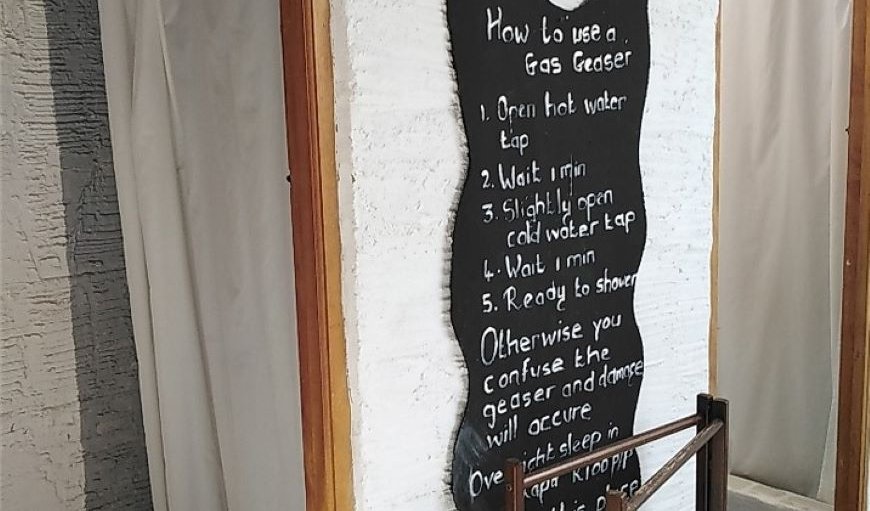 How to use a
Gas Geaser
1. Open hot water
tap
2. Wait 1 min
3. Slightly open
cold water tap
4. Wait 1 min
5. Ready to shower
Otherwise you
confuse the
geaser and damage
will occure
sleep in
R100 p/p
place